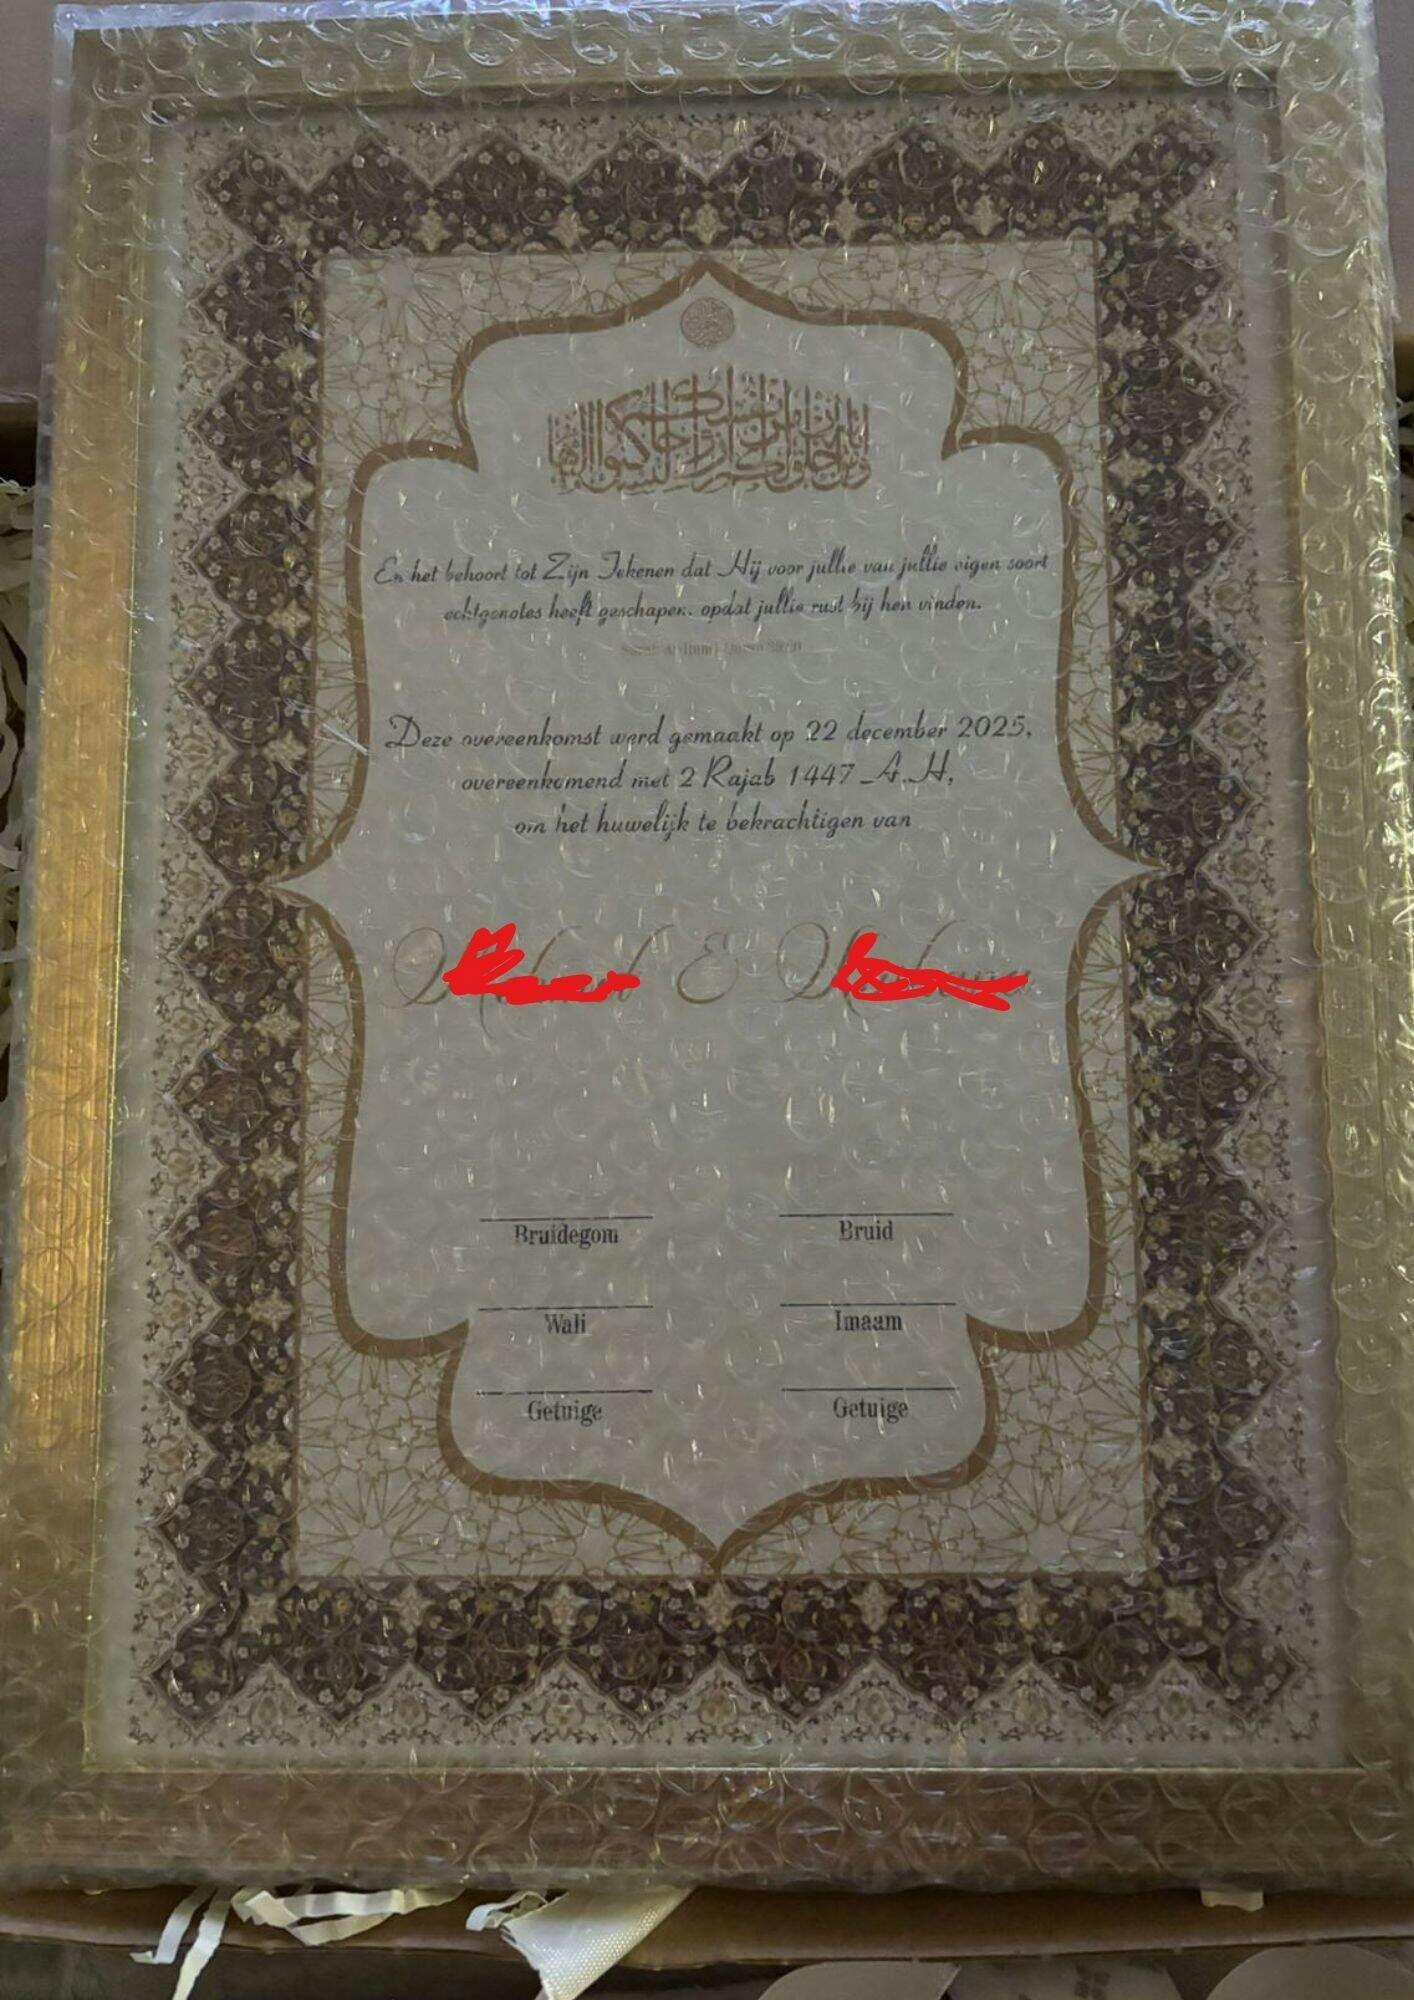 ومن آياته أن خلق لكم من أنفسكم أزواجا لتسكنوا إليها
En het behoort tot Zijn Tekenen dat Hij voor jullie van jullie eigen soort
echtgenotes heeft geschapen, opdat jullie rust bij hen vinden.
Deze overeenkomst werd gemaakt op 22 december 2025,
overeenkomend met 2 Rajab 1447 A.H,
om het huwelijk te bekrachtigen van
&
Bruidegom Bruid
Wali Imaam
Getuige Getuige